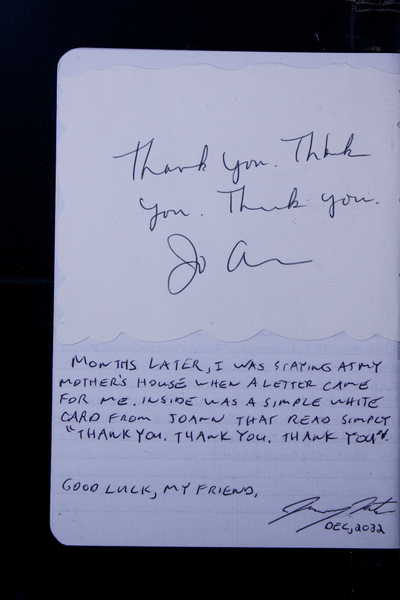 Thank you. Thank
you. Thank you.
Jo An
MONTHS LATER, I WAS STAYING AT MY
MOTHER'S HOUSE WHEN A LETTER CAME
FOR ME. INSIDE WAS A SIMPLE WHITE
CARD FROM JOANN THAT READ SIMPLY
"THANK YOU. THANK YOU. THANK YOU".
GOOD LUCK, MY FRIEND,
DEC, 2032